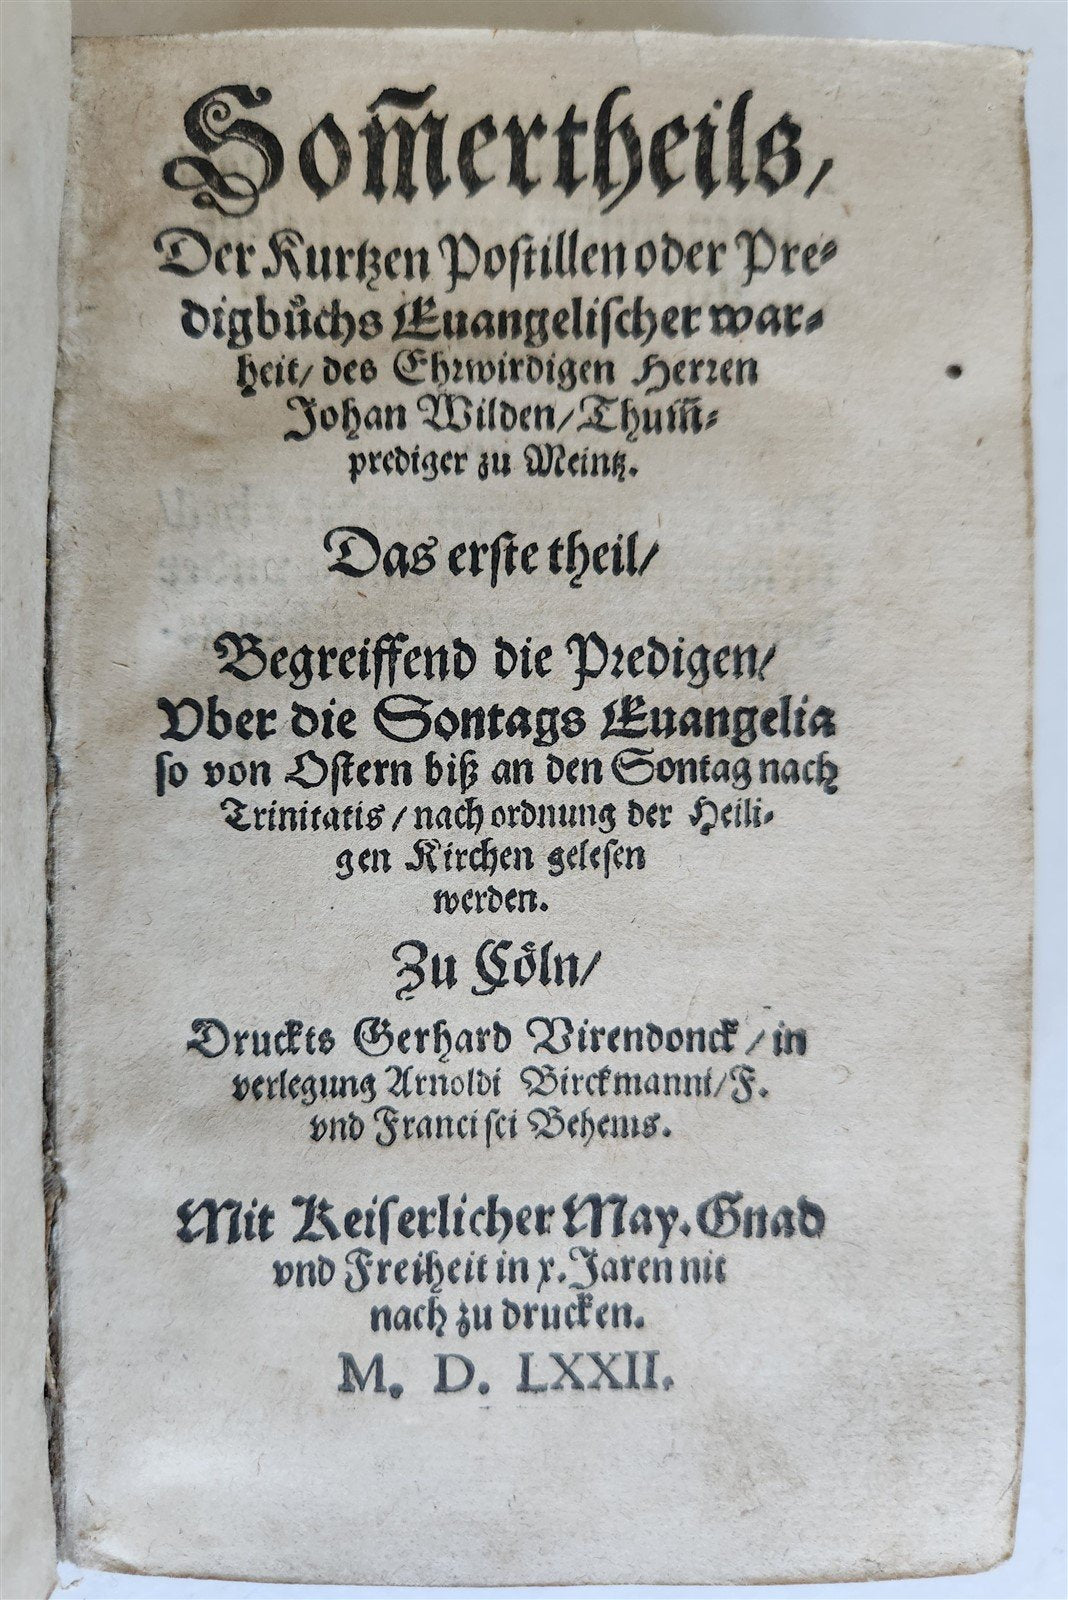 Som̃ertheils,
Der Kurtzen Postillen oder Pre-
digbuͦchs Euangelischer war-
heit/ des Ehrwirdigen Herren
Johan Wilden/ Thum̃-
prediger zu Meintz.
Das erste theil/
Begreiffend die Predigen/
Vber die Sontags Euangelia
so von Ostern biß an den Sontag nach
Trinitatis / nach ordnung der Heili-
gen Kirchen gelesen
werden.
Zu Coͤln/
Druckts Gerhard Virendonck / in
verlegung Arnoldi Birckmanni/ F.
vnd Francisci Behems.
Mit Keiserlicher May. Gnad
vnd Freiheit in x. Jaren nit
nach zu drucken.
M. D. LXXII.